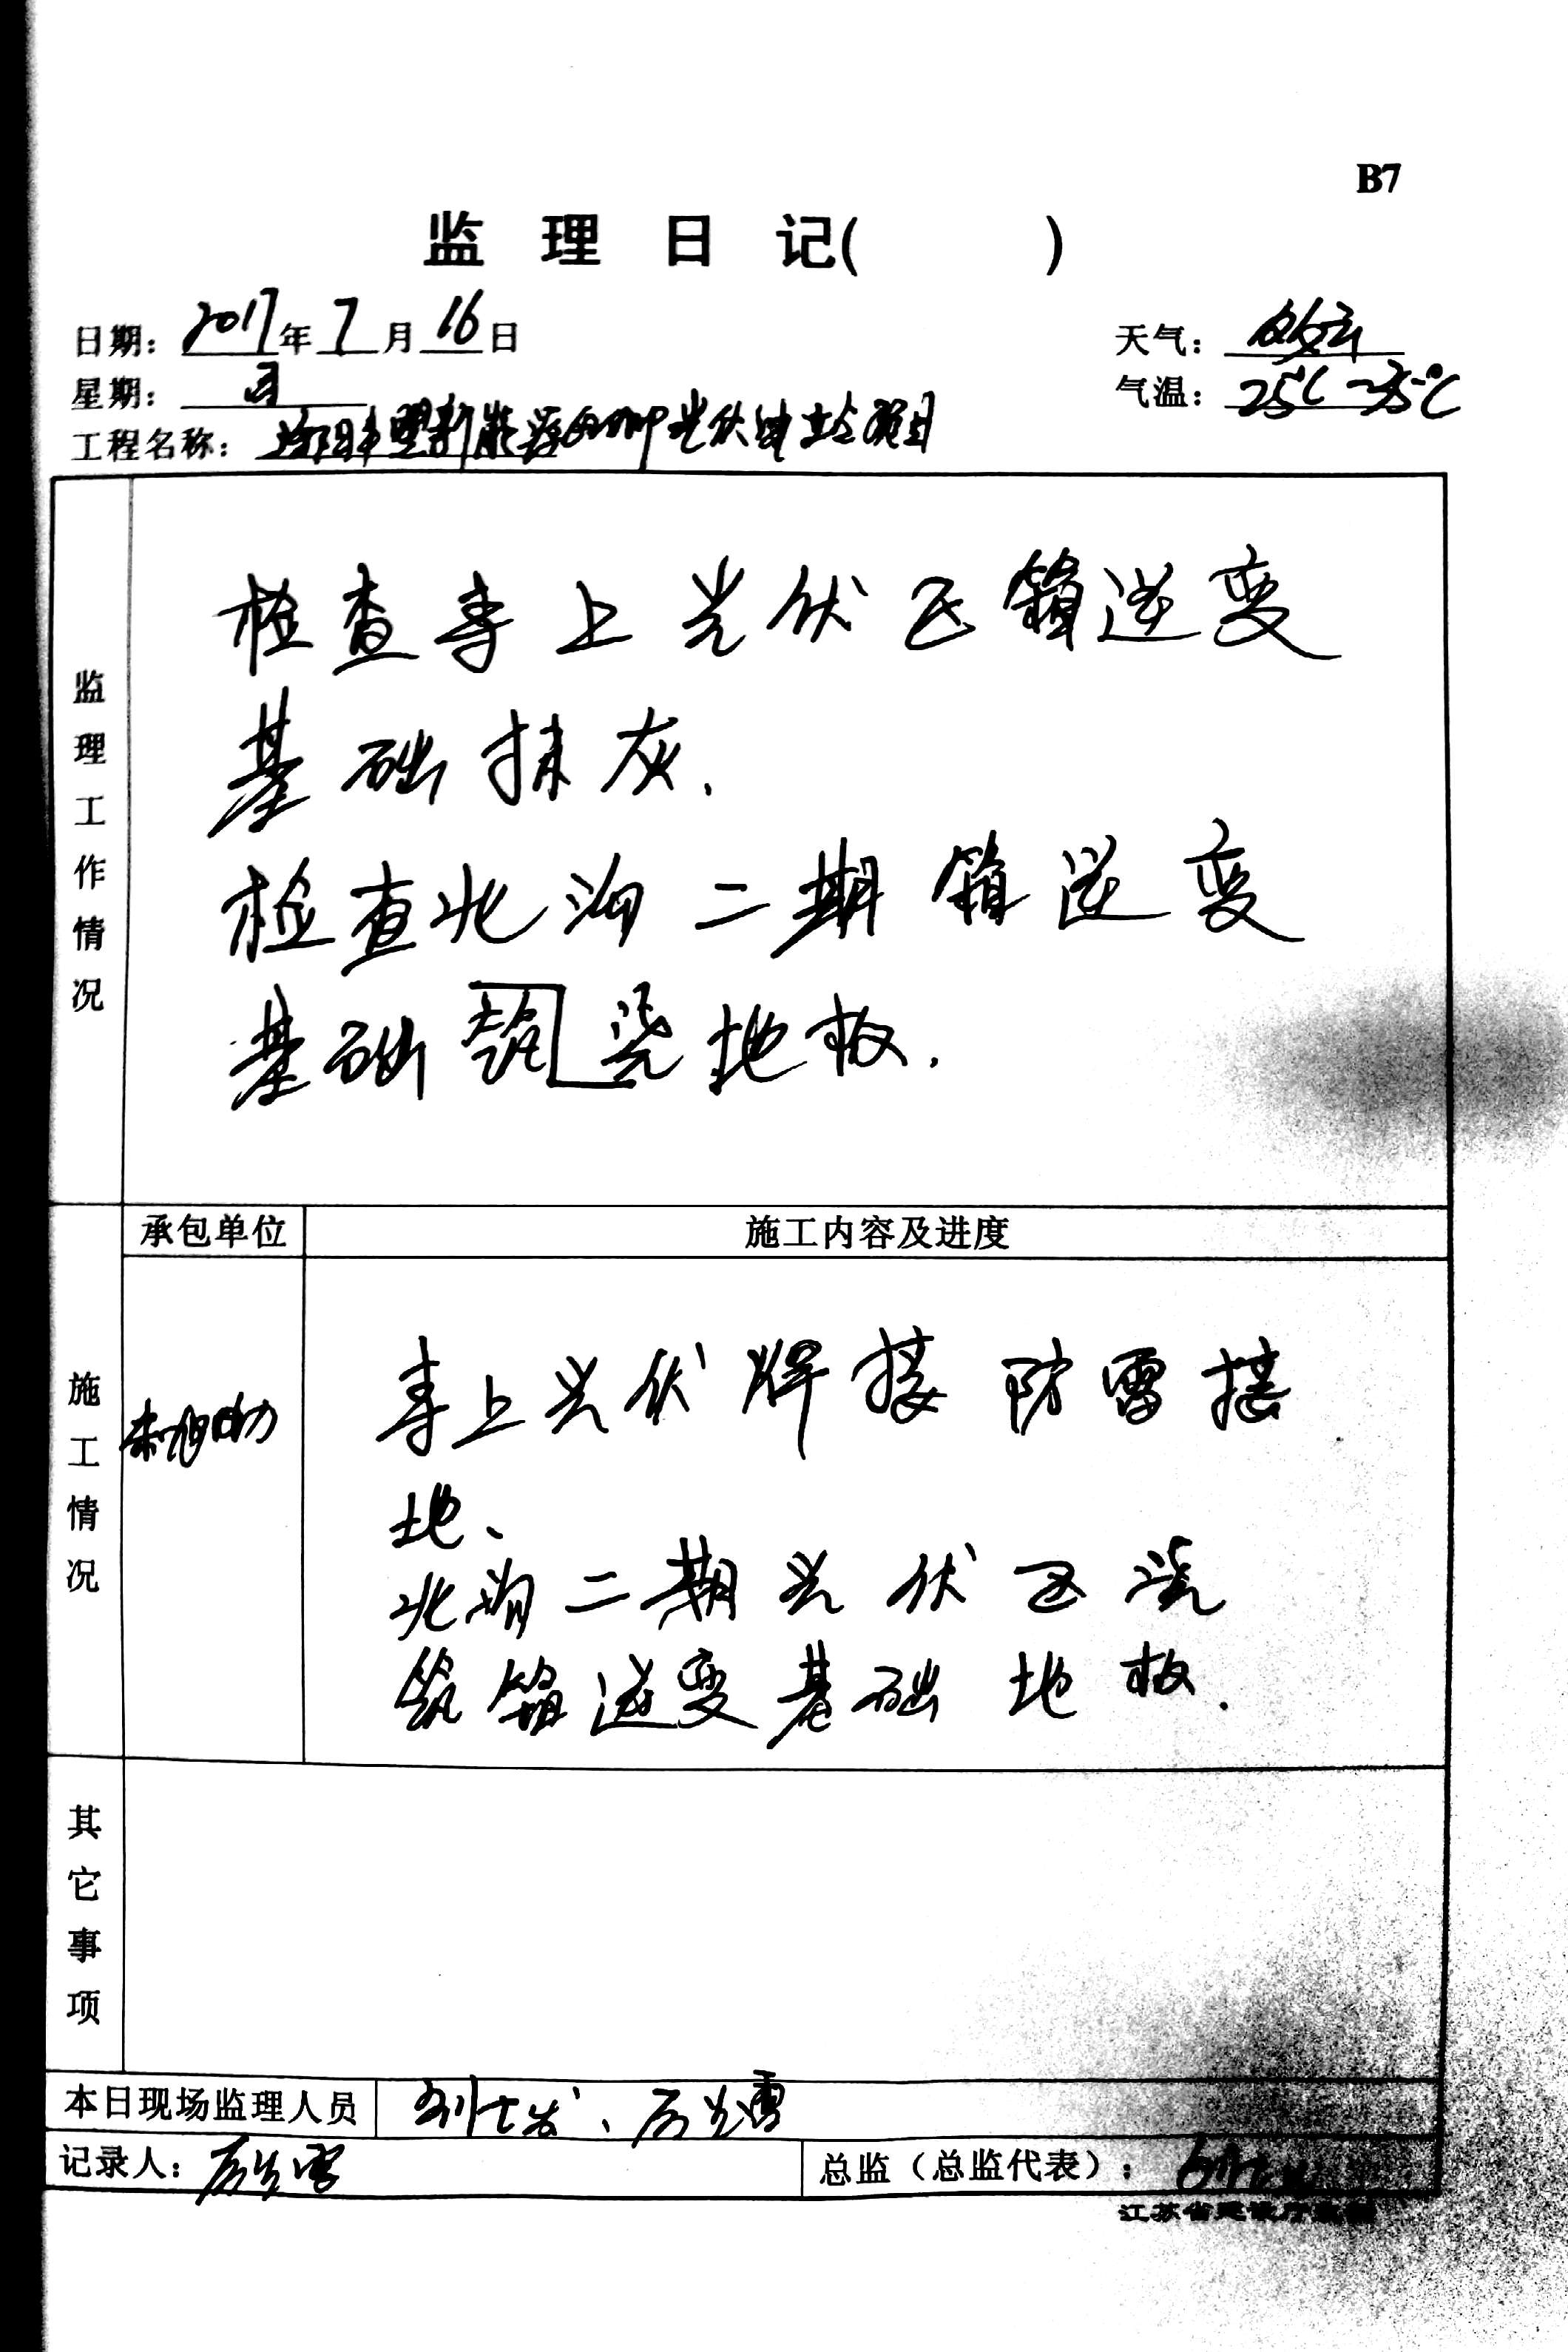 B7
监 理 日 记( )
日期: 2017年7月16日
天气: 多云
星期: 日
气温: 25℃-35℃
工程名称: 新能源 光伏电站项目
监理工作情况
检查寺上光伏区箱逆变
基础抹灰.
检查北沟二期箱逆变
基础浇地板.
承包单位
施工内容及进度
施工情况
寺上光伏焊接防雷接
地、
北沟二期光伏区浇
筑箱逆变基础地板.
其它事项
本日现场监理人员
记录人:
总监(总监代表):
江苏省建设厅监制